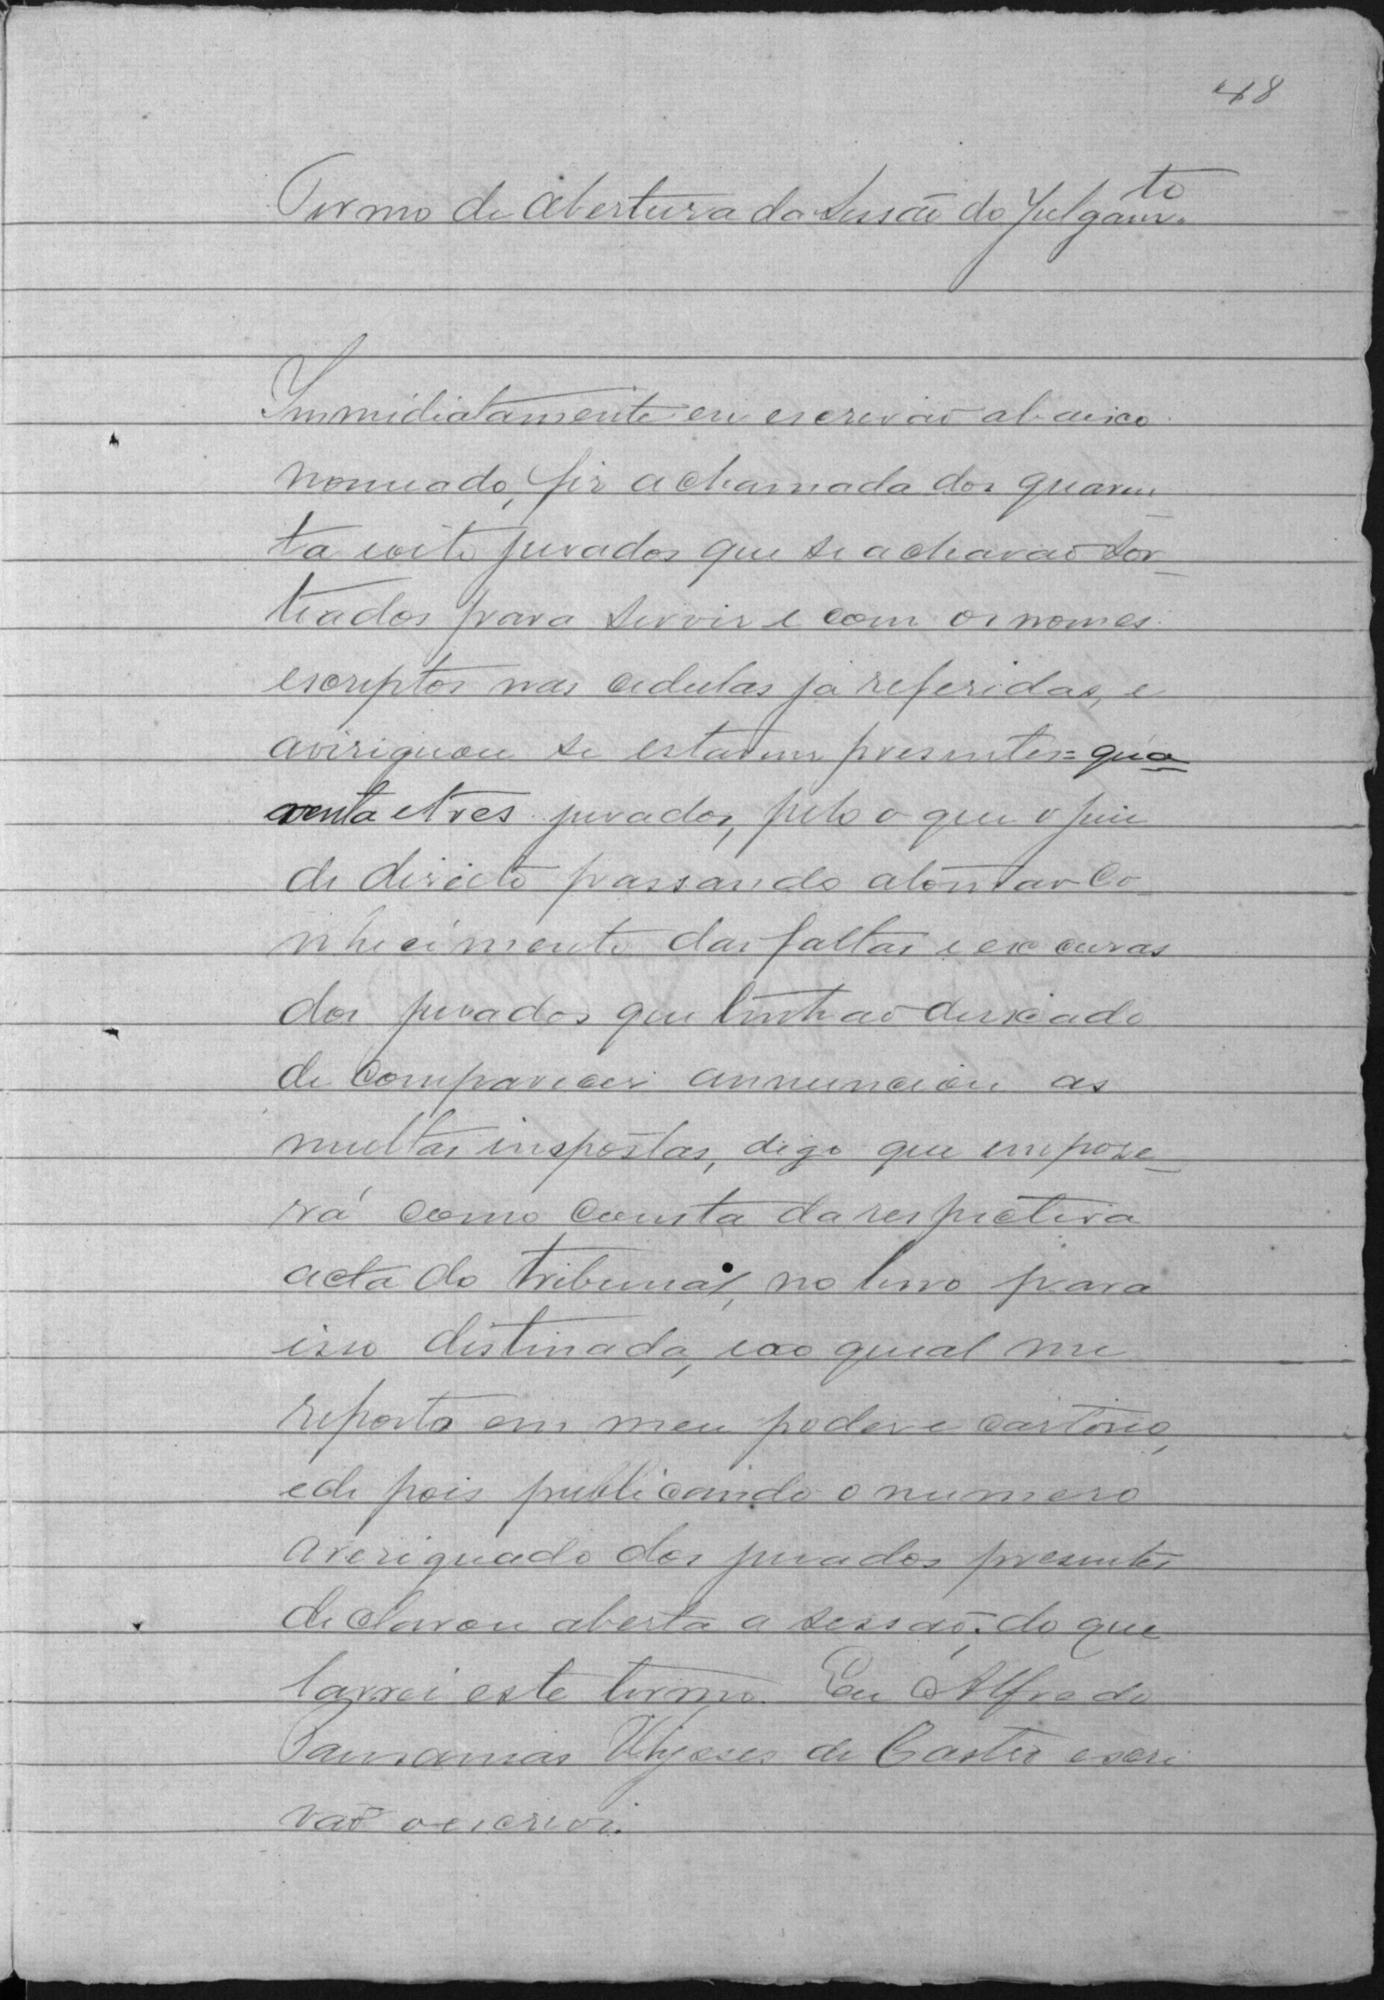 48
Termo de abertura da Sessão do Julgam.to
Immidiatamente eu escrivão abaixo
nomeado, fiz a chamada dos quaren-
ta e oito jurados que se achavão Sor-
teados para servir e com os nomes
escriptos nas cedulas já referidas, e
aviriguou se estarem presentes = qua
renta e tres jurados, pelo o que o juiz
de direito passando a tomar Co-
nhecimento das faltas e excuzas
dos jurados que tinhão deixado
de comparecer annunciou as
multas impostas, digo que impoze-
rá como consta da respectiva
acta do tribunal, no livro para
isso distinado, e ao qual me
reporto em meu poder e cartorio,
e de pois publicando o numero
averiguado dos jurados presentes
declarou aberta a sessão; do que
lavrei este termo. Eu Alfredo
Ulysses de Castro escri
vão o escrevi.